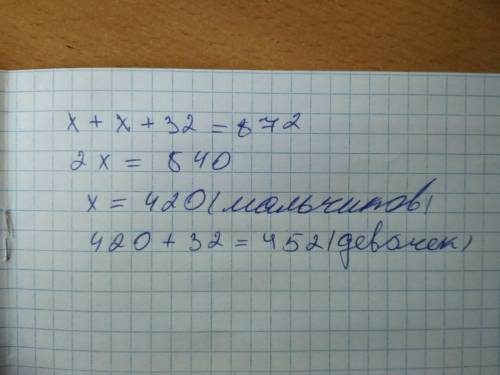 x + x + 32 = 872
2x = 840
x = 420 (мальчиков)
420 + 32 = 452 (девочек)